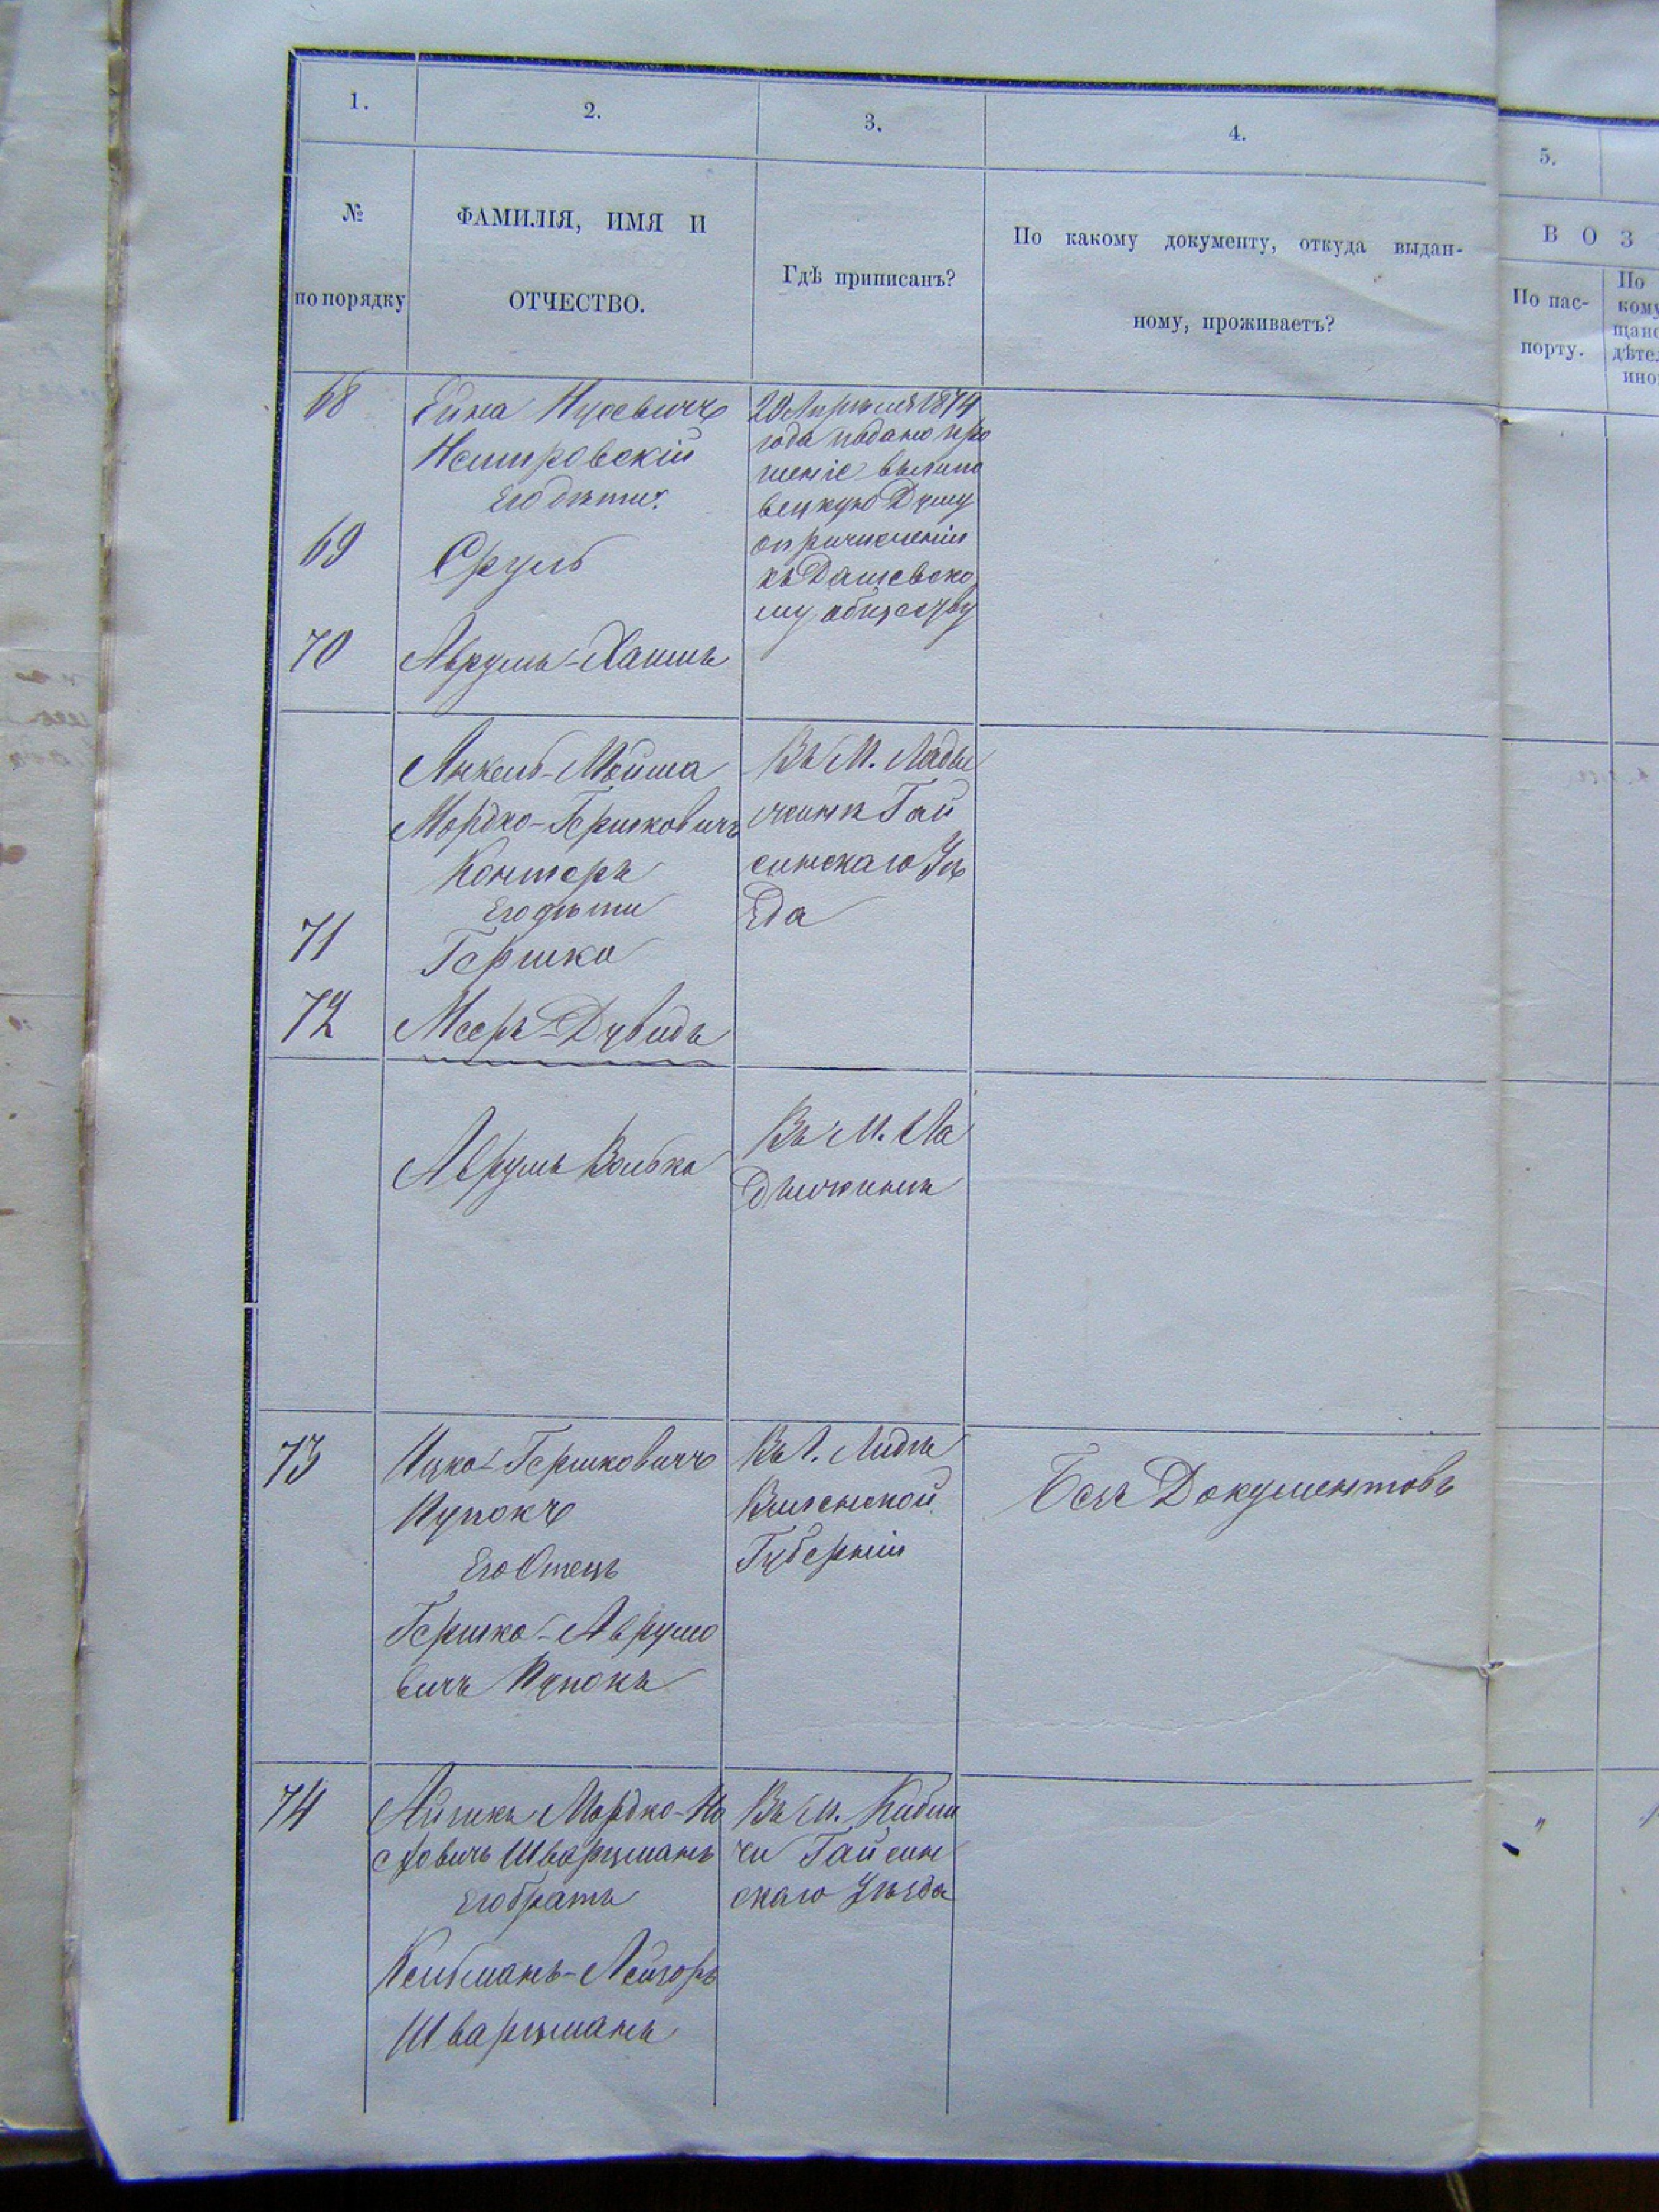 1. 2. 3. 4. 5.
№ по порядку
ФАМИЛІЯ, ИМЯ И
ОТЧЕСТВО.
Гдѣ приписанъ?
По какому документу, откуда выдан-
ному, проживаетъ?
В О З
По пас-
порту.
По
кому
щанс
дѣтел
ино
68
Нусовичъ
Немировскій
Его дѣти:
69
Сруль
70
Аврумъ-Хаимъ
20 Апрѣля 1874
года подано про
шеніе вылипо
вецкую Думу
опричисленіи
къ Дашевско
му обществу
Янкель-Мойша
Мордко-Гершковичъ
Контеръ
Его дѣти
71
Гершко
72
Мееръ-Дувидъ
Въ М. Лады
жинѣ Гай
синскаго Уѣ
зда
Аврумъ Волько
Въ М. Ла
дыжинѣ
73
Ицко-Гершковичъ
Пупокъ
Его Отецъ
Гершко-Аврумо
вичъ Пупокъ
Въ Г. Лидѣ
Виленской
Губерніи
Безъ Документовъ
74
Айзикъ Мордко-Ио
Шварцманъ
Его братъ
Шварцманъ
Въ М. Кибли
чи Гайсин
скаго Уѣзда